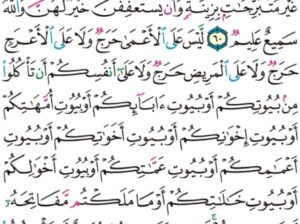 غَيْرَ مُتَبَرِّجَٰتٍۭ بِزِينَةٍ ۖ وَأَن يَسْتَعْفِفْنَ خَيْرٌ لَّهُنَّ ۗ وَٱللَّهُ
سَمِيعٌ عَلِيمٌ ٦٠ لَّيْسَ عَلَى ٱلْأَعْمَىٰ حَرَجٌ وَلَا عَلَى ٱلْأَعْرَجِ
حَرَجٌ وَلَا عَلَى ٱلْمَرِيضِ حَرَجٌ وَلَا عَلَىٰٓ أَنفُسِكُمْ أَن تَأْكُلُوا۟
مِنۢ بُيُوتِكُمْ أَوْ بُيُوتِ ءَابَآئِكُمْ أَوْ بُيُوتِ أُمَّهَٰتِكُمْ
أَوْ بُيُوتِ إِخْوَٰنِكُمْ أَوْ بُيُوتِ أَخَوَٰتِكُمْ أَوْ بُيُوتِ
أَعْمَٰمِكُمْ أَوْ بُيُوتِ عَمَّٰتِكُمْ أَوْ بُيُوتِ أَخْوَٰلِكُمْ
أَوْ بُيُوتِ خَٰلَٰتِكُمْ أَوْ مَا مَلَكْتُم مَّفَاتِحَهُۥٓ